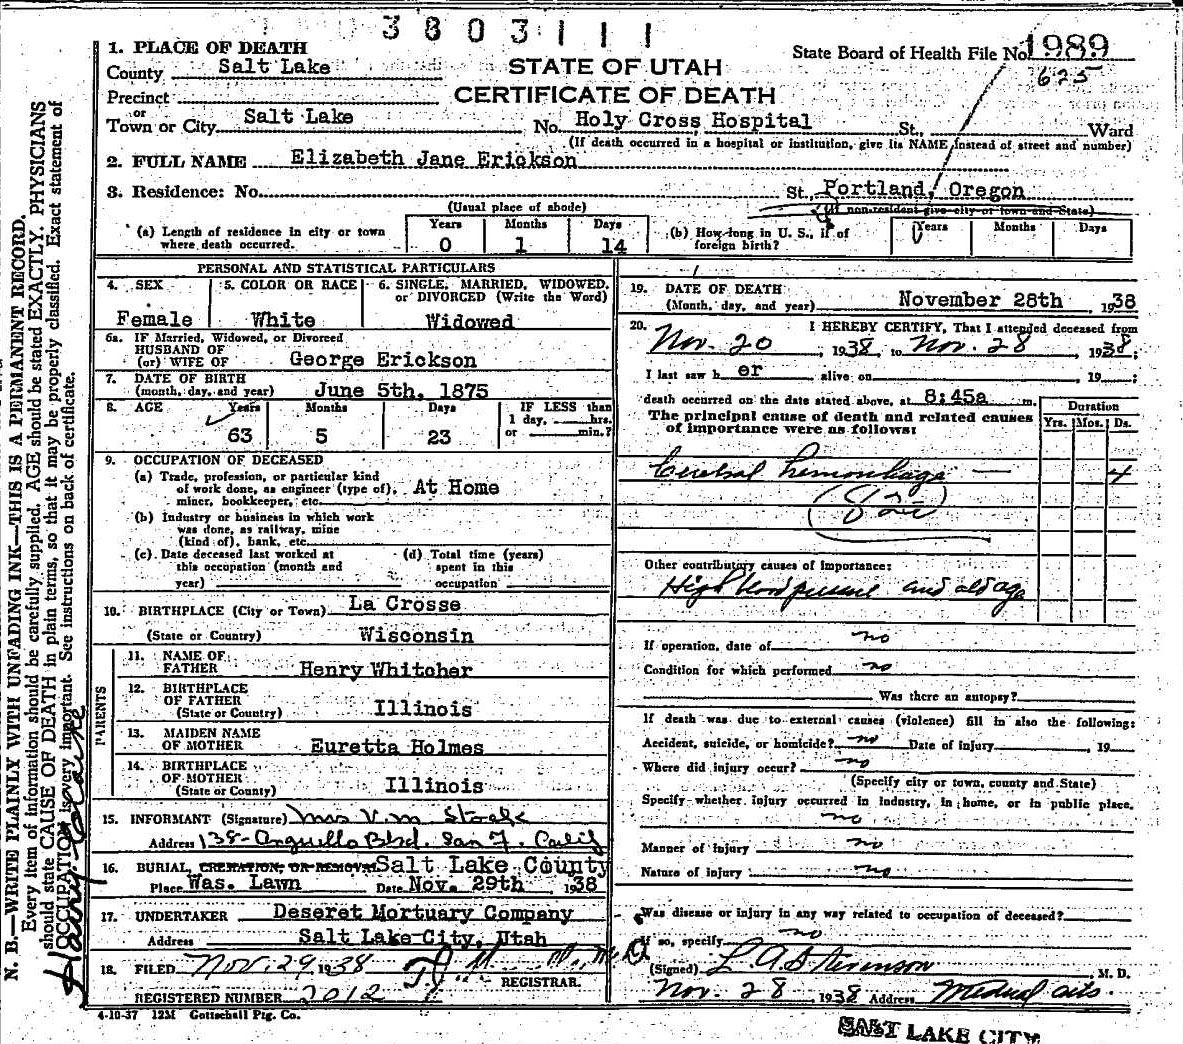 3803111
1. PLACE OF DEATH
County Salt Lake
State Board of Health File No. 1989
625
STATE OF UTAH
CERTIFICATE OF DEATH
Precinct
or
Town or City Salt Lake No. Holy Cross Hospital St., Ward
(If death occurred in a hospital or institution, give its NAME instead of street and number)
2. FULL NAME Elizabeth Jane Erickson
3. Residence: No. St., Portland, Oregon
(Usual place of abode) (If non-resident give city or town and State)
(a) Length of residence in city or town where death occurred. Years 0 Months 1 Days 14
(b) How long in U. S., if of foreign birth? Years Months Days
PERSONAL AND STATISTICAL PARTICULARS
4. SEX Female
5. COLOR OR RACE White
6. SINGLE, MARRIED, WIDOWED, or DIVORCED (Write the Word) Widowed
6a. IF Married, Widowed, or Divorced
HUSBAND OF
(or) WIFE OF George Erickson
7. DATE OF BIRTH
(month, day, and year) June 5th, 1875
8. AGE Years 63 Months 5 Days 23
IF LESS than
1 day, hrs.
or min.?
9. OCCUPATION OF DECEASED
(a) Trade, profession, or particular kind
of work done, as engineer (type of), At Home
miner, bookkeeper, etc.
(b) Industry or business in which work
was done, as railway, mine
(kind of), bank, etc.
(c) Date deceased last worked at
this occupation (month and
year)
(d) Total time (years)
spent in this
occupation
10. BIRTHPLACE (City or Town) La Crosse
(State or Country) Wisconsin
PARENTS
11. NAME OF
FATHER Henry Whitcher
12. BIRTHPLACE
OF FATHER
(State or Country) Illinois
13. MAIDEN NAME
OF MOTHER Euretta Holmes
14. BIRTHPLACE
OF MOTHER
(State or Country) Illinois
15. INFORMANT (Signature) Mrs V. M.
Address 138- Arguello Blvd. San F. Calif
16. BURIAL, CREMATION, OR REMOVAL Salt Lake County
Place Was. Lawn Date Nov. 29th 1938
17. UNDERTAKER Deseret Mortuary Company
Address Salt Lake City, Utah
18. FILED Nov. 29 1938
REGISTRAR.
REGISTERED NUMBER 2012
4-10-37 12M Gottschall Ptg. Co.
19. DATE OF DEATH
(Month, day, and year) November 28th 1938
20. I HEREBY CERTIFY, That I attended deceased from
Nov. 20, 1938, to Nov. 28, 1938;
I last saw her alive on , 19 ;
death occurred on the date stated above, at 8:45a m.
The principal cause of death and related causes
of importance were as follows:
Duration
Yrs. Mos. Ds.
Cerebral hemorrhage — 4
Other contributory causes of importance:
High blood pressure and old age
If operation, date of no
Condition for which performed no
Was there an autopsy?
If death was due to external causes (violence) fill in also the following:
Accident, suicide, or homicide? no Date of injury 19
Where did injury occur? no
(Specify city or town, county and State)
Specify whether injury occurred in industry, in home, or in public place.
no
Manner of injury no
Nature of injury no
Was disease or injury in any way related to occupation of deceased?
If so, specify no
(Signed) L. A. Stevenson, M. D.
Nov. 28 1938 Address Medical Arts.
SALT LAKE CITY
N. B.—WRITE PLAINLY WITH UNFADING INK—THIS IS A PERMANENT RECORD.
Every item of information should be carefully supplied. AGE should be stated EXACTLY. PHYSICIANS
should state CAUSE OF DEATH in plain terms, so that it may be properly classified. Exact statement of
OCCUPATION is very important. See instructions on back of certificate.